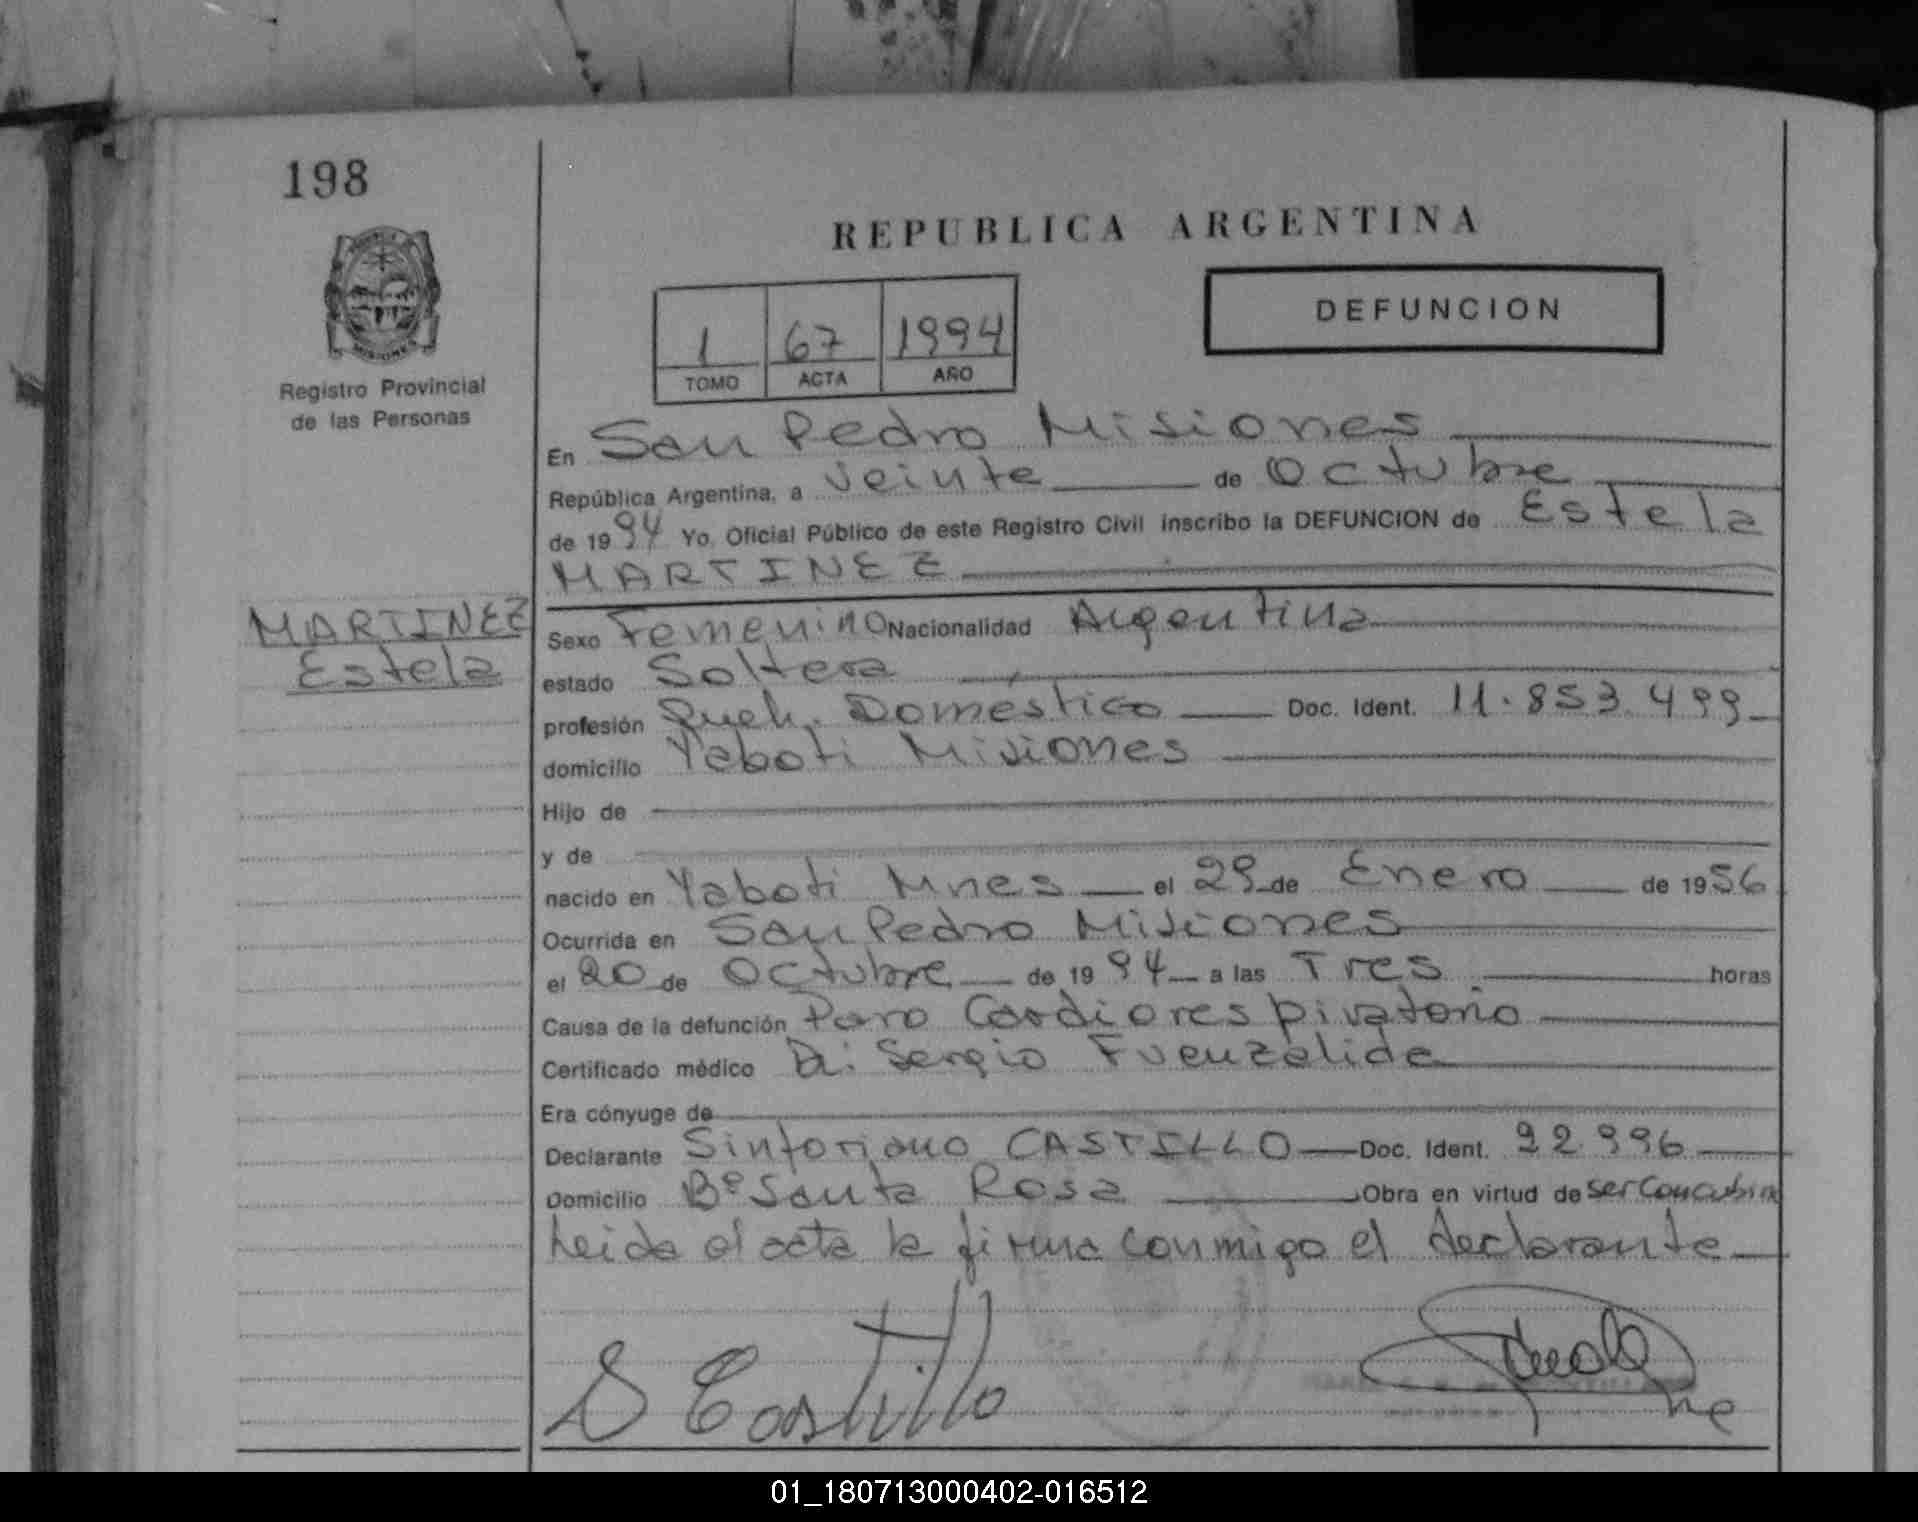 198
REPUBLICA ARGENTINA
DEFUNCION
1 67 1994
TOMO ACTA AÑO
Registro Provincial
de las Personas
En San Pedro Misiones
República Argentina, a veinte de Octubre
de 1994 Yo, Oficial Público de este Registro Civil inscribo la DEFUNCION de Estela
MARTINEZ
MARTINEZ
Estela
Sexo Femenino Nacionalidad Argentina
estado Soltera
profesión Queh. Doméstico Doc. Ident. 11.853.499
domicilio Yaboti Misiones
Hijo de
y de
nacido en Yaboti Mnes el 29 de Enero de 1956
Ocurrida en San Pedro Misiones
el 20 de Octubre de 1994 a las Tres horas
Causa de la defunción Paro Cardiorespiratorio
Certificado médico Dr. Sergio Fuenzalida
Era cónyuge de
Declarante Sinforiano CASTILLO Doc. Ident. 92.996
Domicilio Bº Santa Rosa Obra en virtud de ser Concubino
Leida el acta la firma conmigo el declarante
S Castillo
01_180713000402-016512